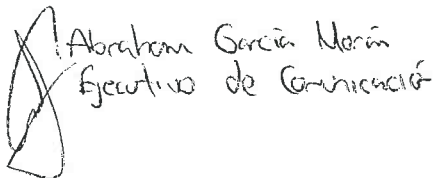 Abraham García Morán
Ejecutivo de Comunicació